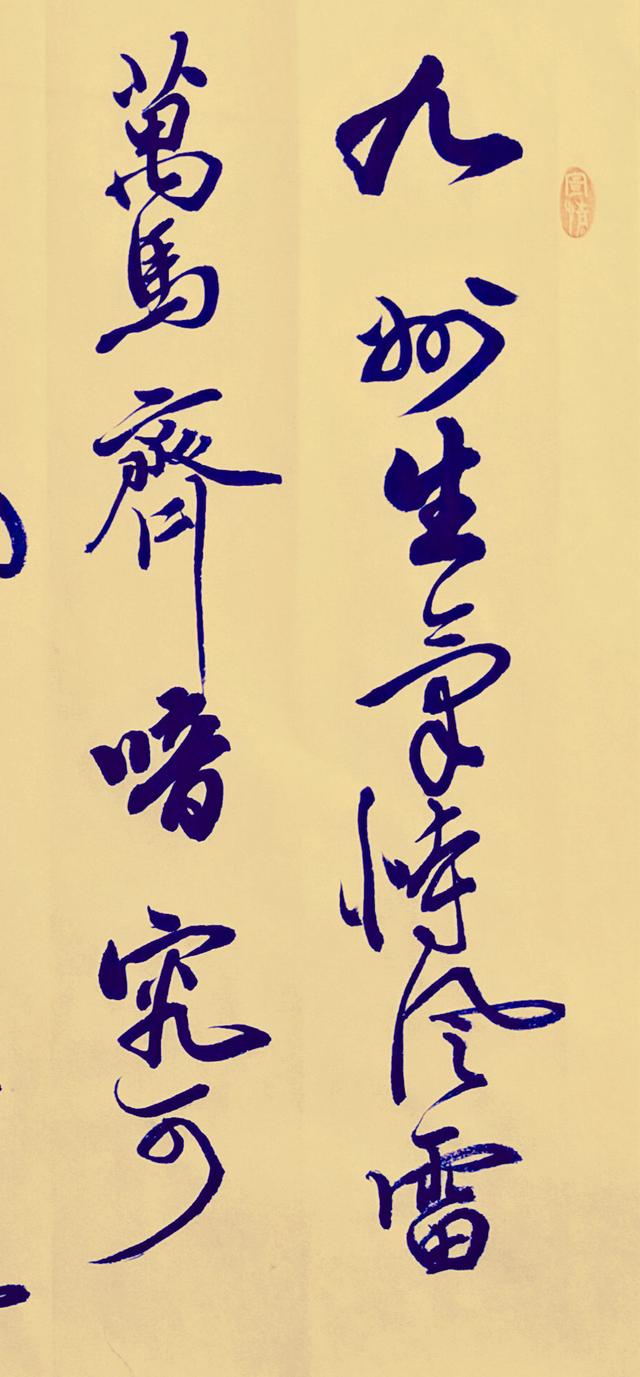 九州生氣恃風雷
萬馬齊喑究可